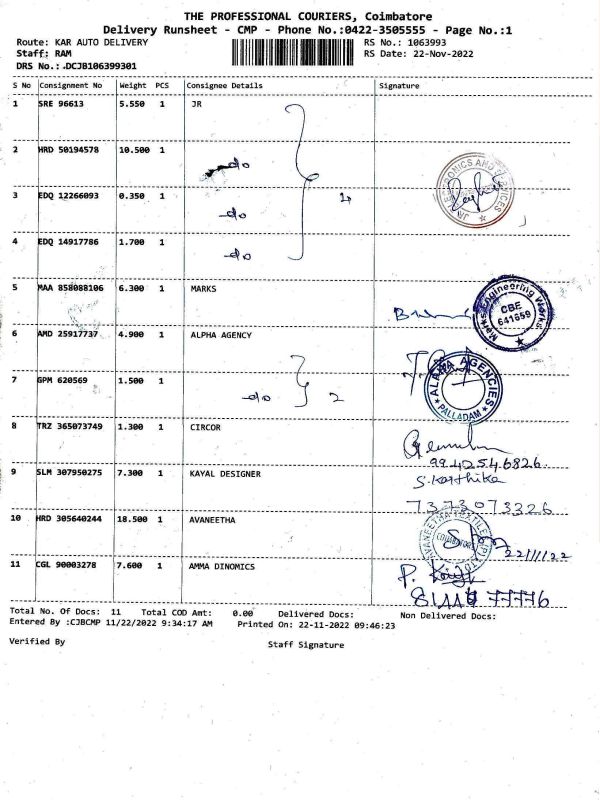 THE PROFESSIONAL COURIERS, Coimbatore
Delivery Runsheet - CMP - Phone No.:0422-3505555 - Page No.:1
Route: KAR AUTO DELIVERY RS No.: 1063993
Staff: RAM RS Date: 22-Nov-2022
DRS No.:.DCJB106399301
S No Consignment No Weight PCS Consignee Details Signature
1 SRE 96613 5.550 1 JR
2 HRD 50194578 10.500 1 do
3 EDQ 12266093 0.350 1 do 4
4 EDQ 14917786 1.700 1 do
5 MAA 858088106 6.300 1 MARKS
Marks Engineering Works CBE 641659
6 AMD 25917737 4.900 1 ALPHA AGENCY
7 GPM 620569 1.500 1 do 2
AGENCIES PALLADAM
8 TRZ 365073749 1.300 1 CIRCOR
9942546826.
9 SLM 307950275 7.300 1 KAYAL DESIGNER S.Karthika
7373073326
10 HRD 305640244 18.500 1 AVANEETHA
22/11/22
11 CGL 90003278 7.600 1 AMMA DINOMICS
Total No. Of Docs: 11 Total COD Amt: 0.00 Delivered Docs: Non Delivered Docs:
Entered By :CJBCMP 11/22/2022 9:34:17 AM Printed On: 22-11-2022 09:46:23
Verified By Staff Signature